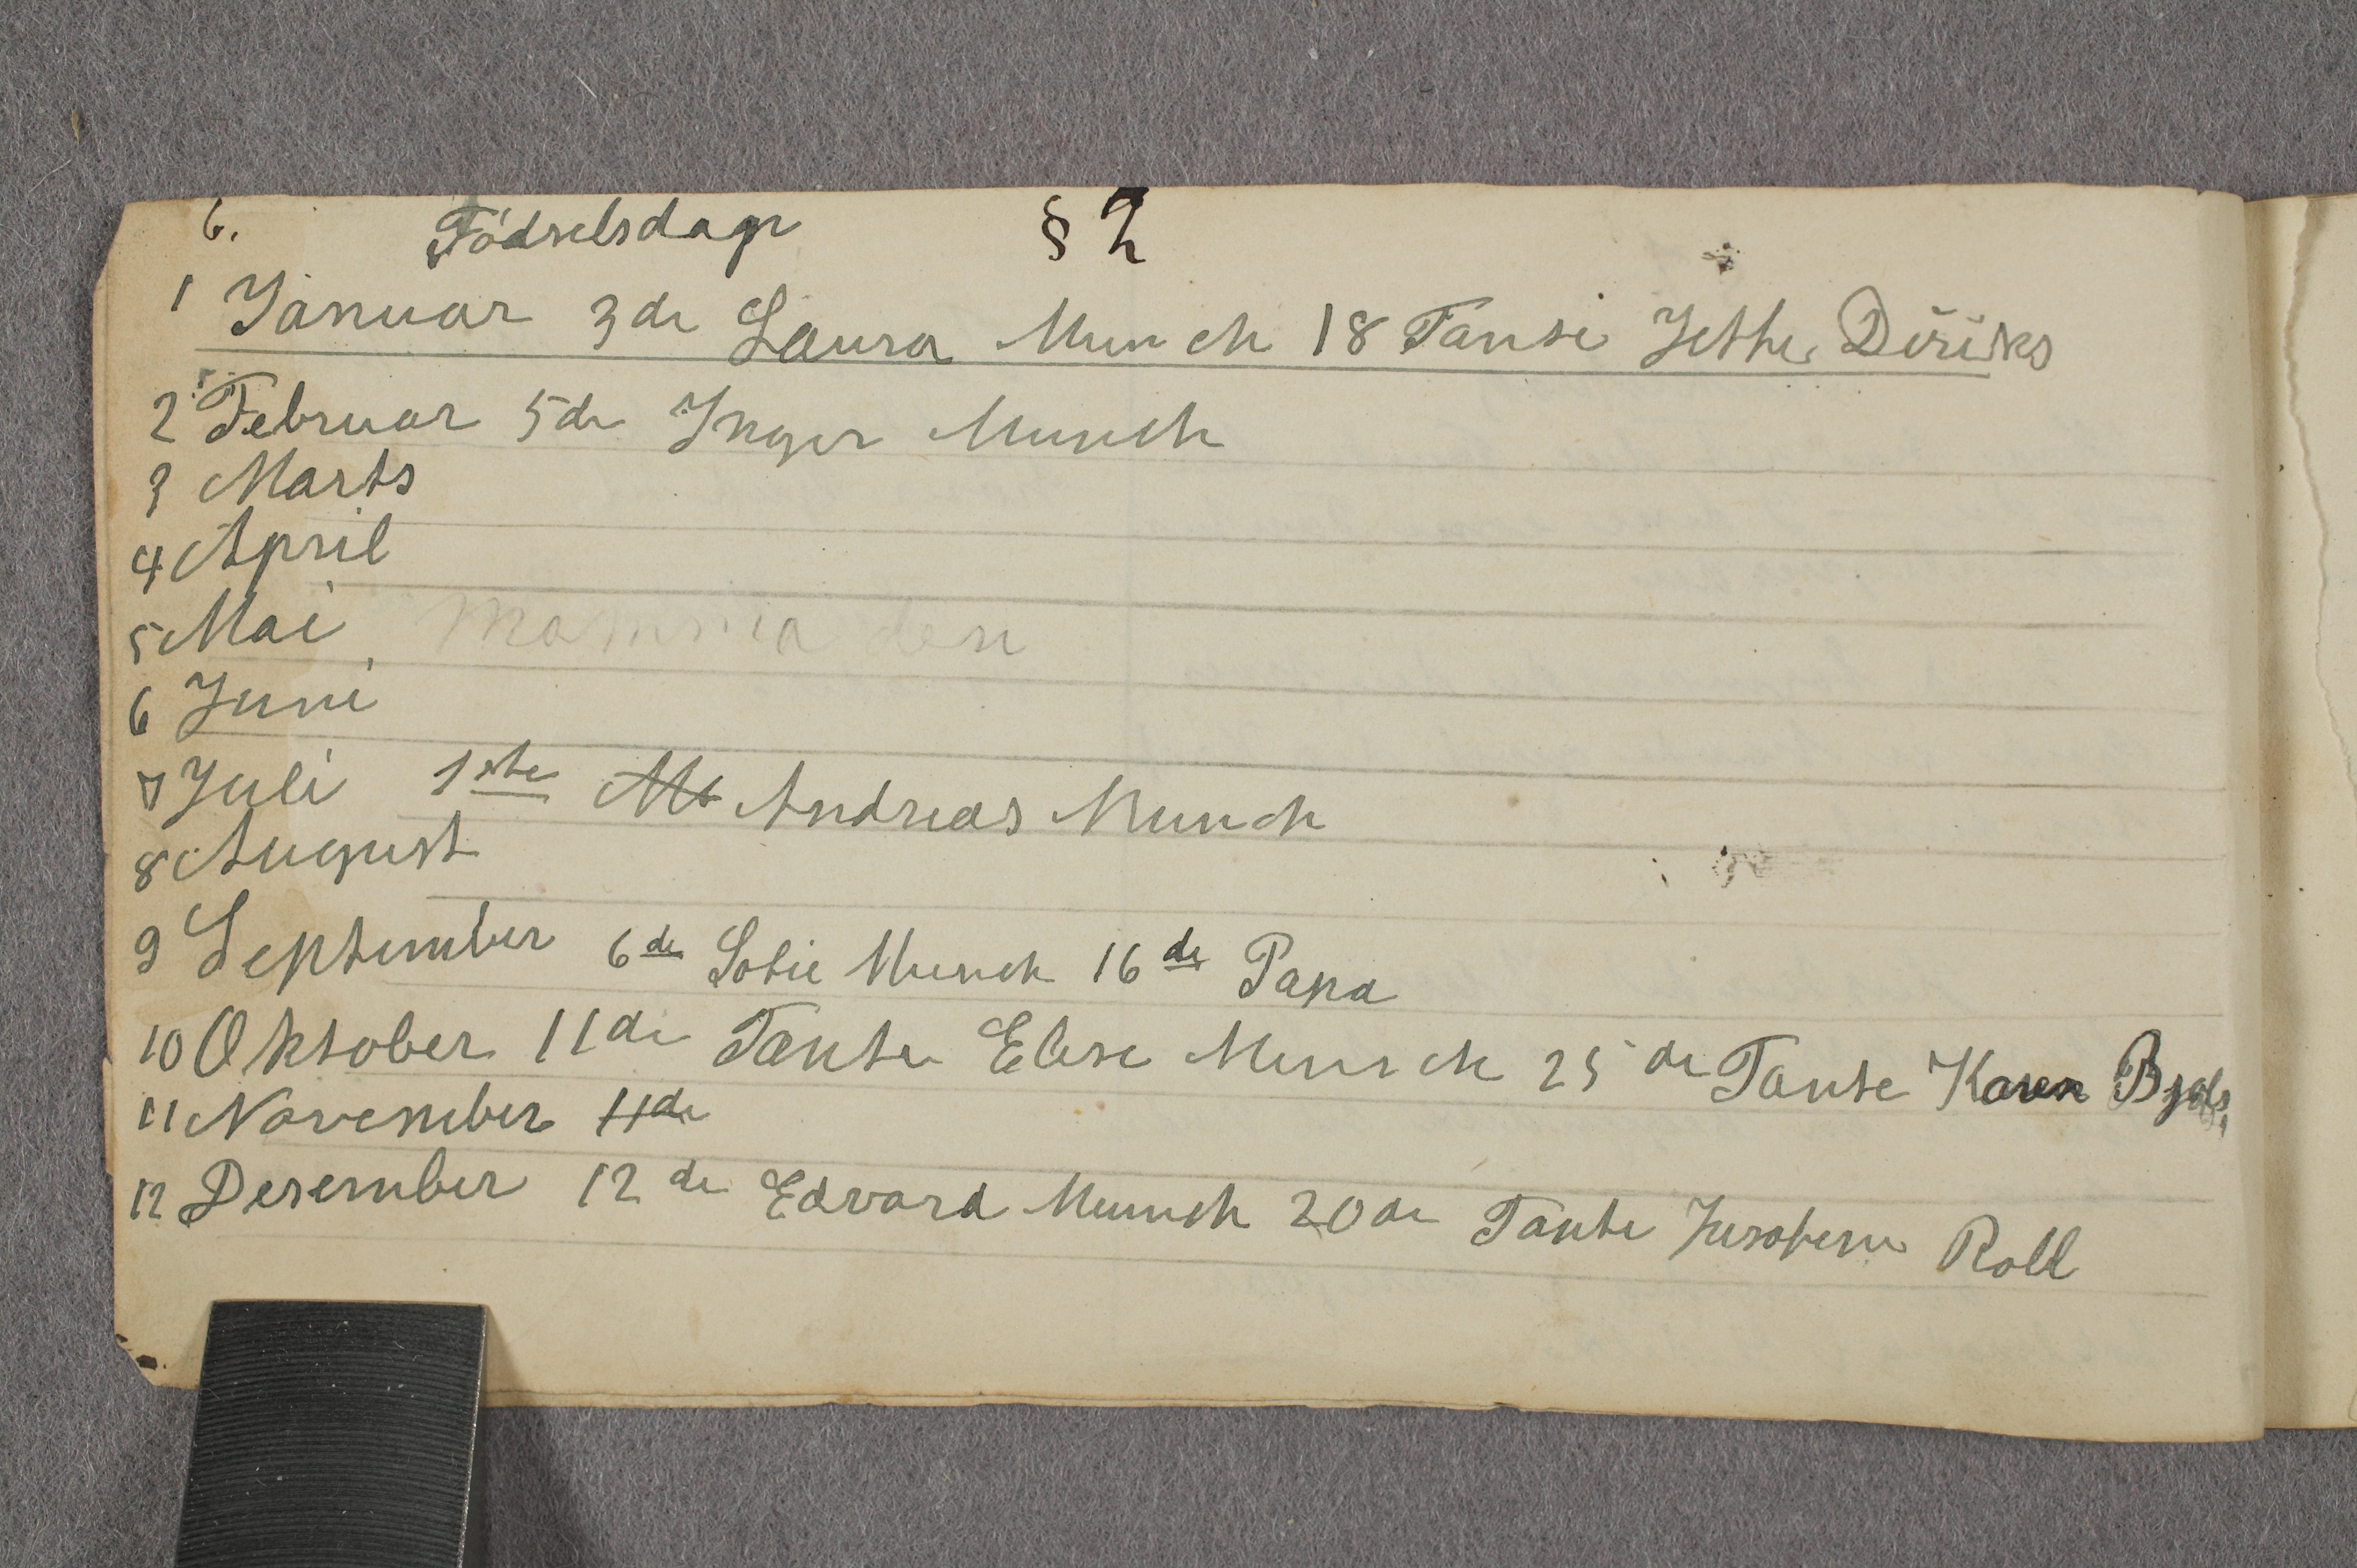 6. Födselsdage § 2
1 Januar 3de Laura Munch 18 Tante Jethe Diriks
2 Februar 5de Inger Munch
3 Marts
4 April
5 Mai Mamma den
6 Juni
7 Juli 1ste Andreas Munch
8 August
9 September 6de Sofie Munch 16de Papa
10 Oktober 11de Tante Elise Munch 25de Tante Karen
11 November 11de
12 Desember 12de Edvard Munch 20de Tante Roll